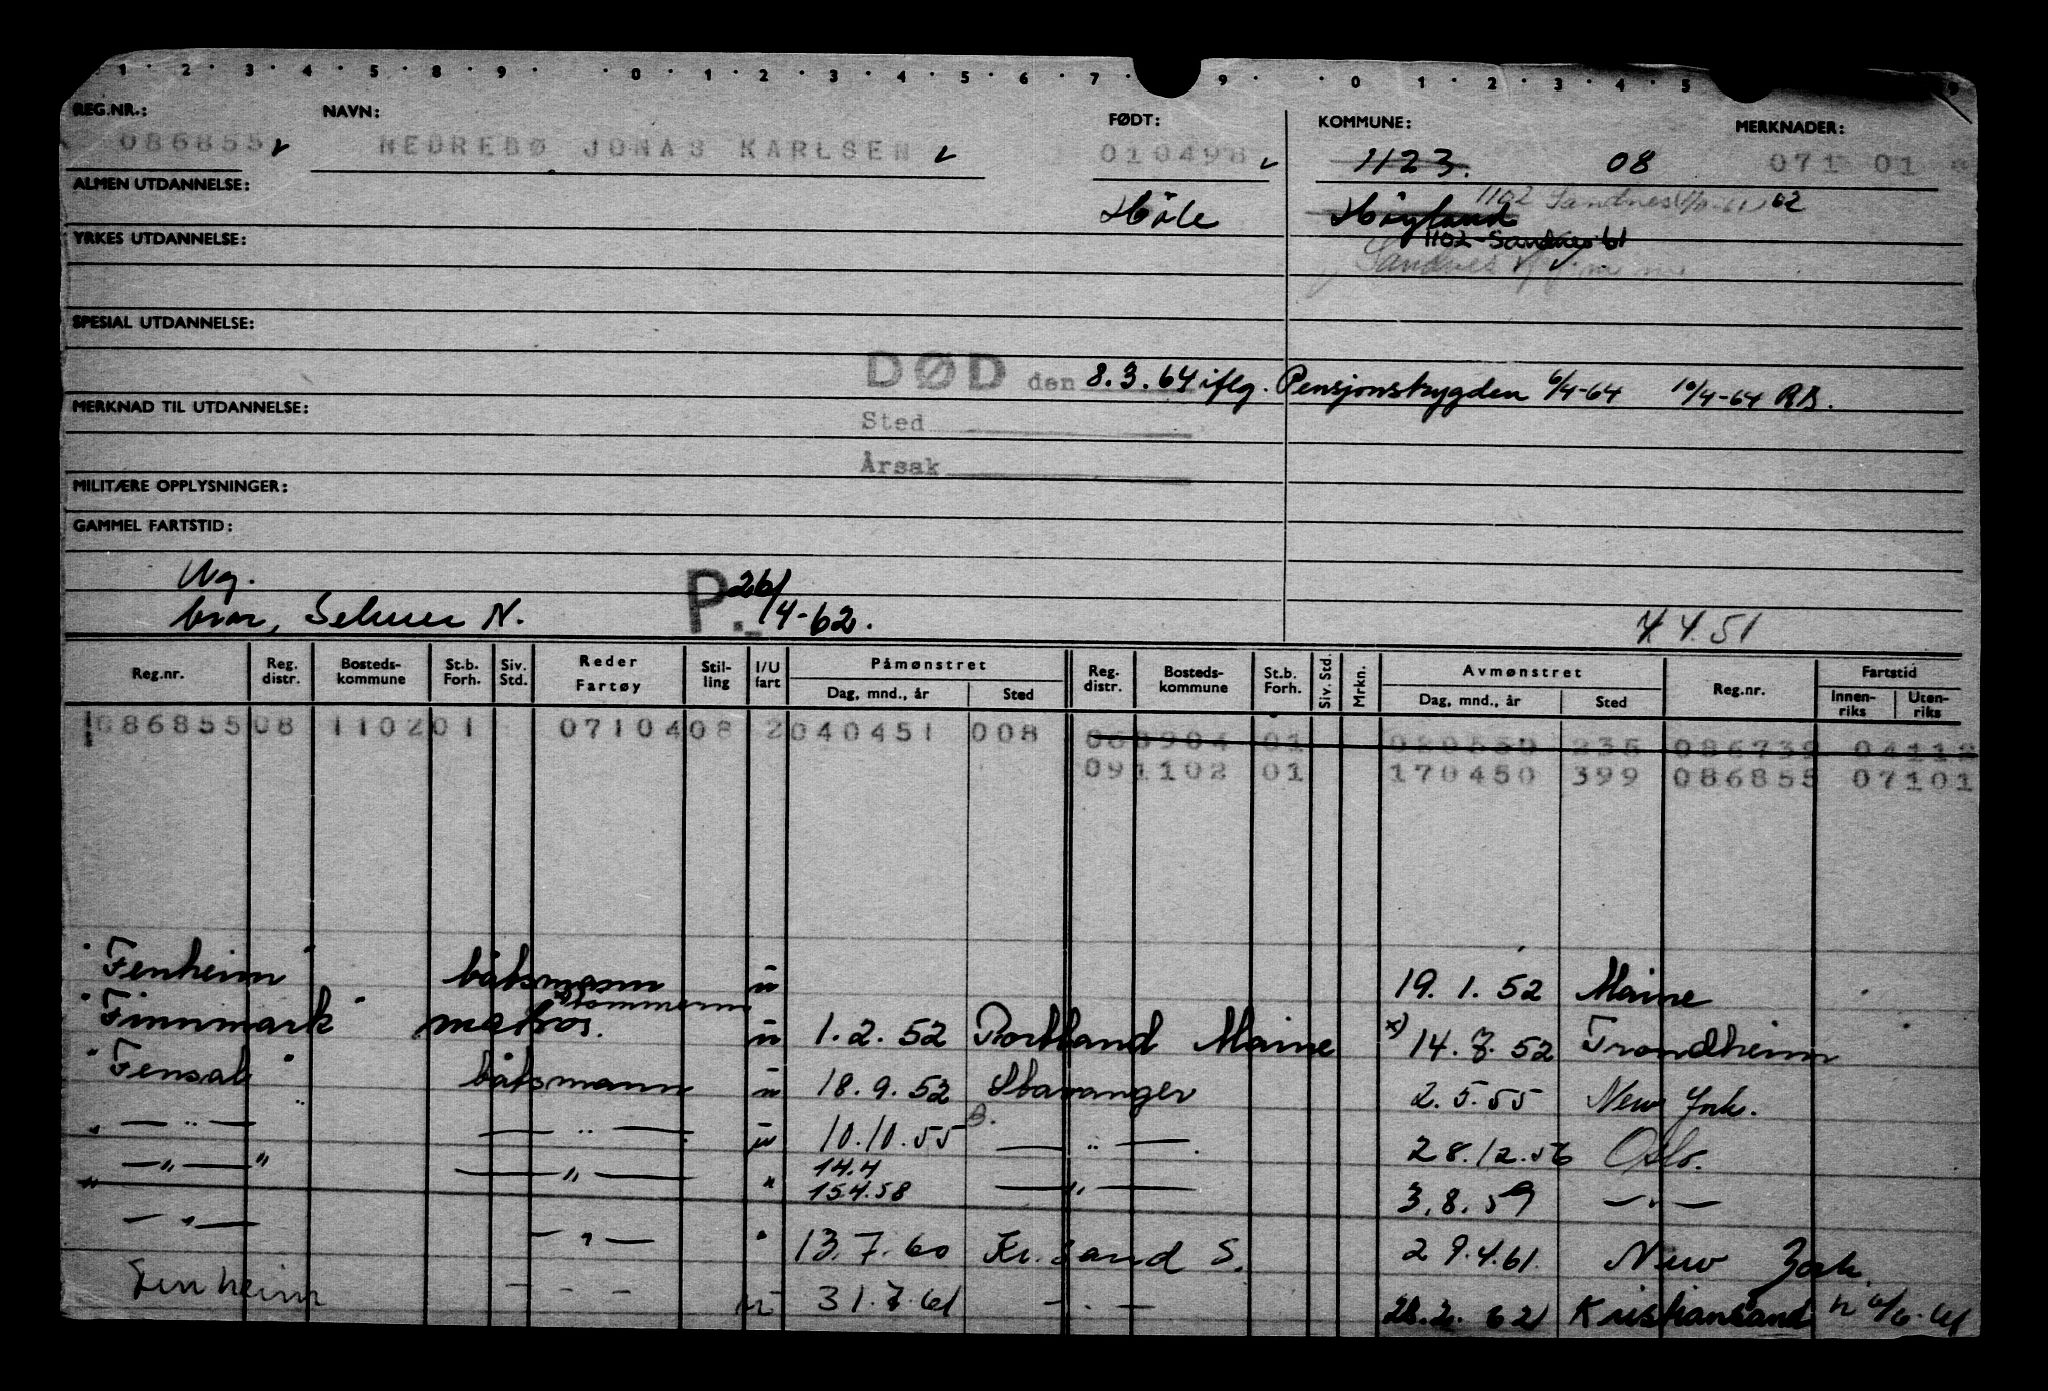 1 2 3 4 5 8 9 0 1 2 3 4 5 6 7 9 0 1 2 3 4 5
REG.NR.: NAVN: FØDT: KOMMUNE: MERKNADER:
086855 NEDREBØ JONAS KARLSEN 010498 1123. 08 071 01
ALMEN UTDANNELSE:
Høle Høyland 1102 Sandnes 02
YRKES UTDANNELSE: 1102 Sandnes 61
Sandnes
SPESIAL UTDANNELSE:
DØD den 8.3.64 iflg. Pensjonstrygden 6/4-64 10/4-64 RB.
MERKNAD TIL UTDANNELSE:
Sted
Årsak
MILITÆRE OPPLYSNINGER:
GAMMEL FARTSTID:
Ug.
bror, Selmer N. P. 26/4-62. 4 4 51
Reg.nr. Reg. distr. Bosteds-kommune St.b. Forh. Siv. Std. Reder Fartøy Stil-ling I/U fart Påmønstret Dag, mnd., år Sted Reg. distr. Bosteds-kommune St.b. Forh. Siv. Std. Mrkn. Avmønstret Dag, mnd., år Sted Reg.nr. Fartstid Innen-riks Uten-riks
086855 08 1102 01 0710408 2 040451 008 080904 01 020550 235 086739 04112
091102 01 170450 399 086855 07101
Fenheim båtsmann u 19. 1. 52 Maine
Finnmark matros. tømmermann u 1. 2. 52 Portland Maine x) 14. 7. 52 Trondheim
Fensal båtsmann u 18. 9. 52 Stavanger 2. 5. 55 New York.
— " — — " — u 10.10.55 B. — " — 28.12.56 Oslo.
— " — — " — " 14.4 15.4.58 — " — 3.8.59 — " —
— " — — " — " 13.7.60 Kr. sand S. 29.4.61. New York.
Fenheim — — — u 31.7.61 — " — 28.2.62 Kristiansand